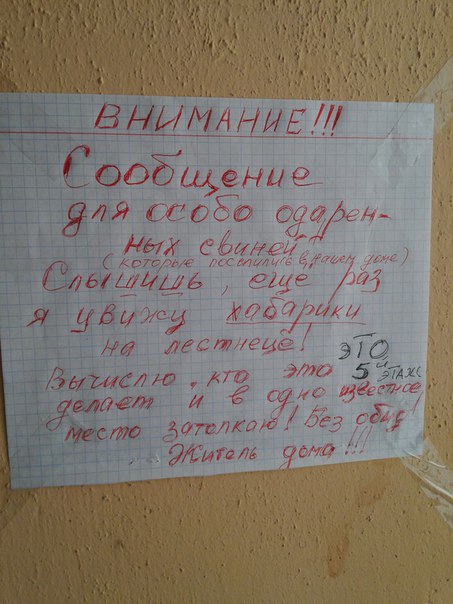 ВНИМАНИЕ!!!
Сообщение
для особо одарен-
ных свиней
(которые поселились в нашем доме)
Слышишь, ещё раз
я увижу хабарики
на лестнеце!
ЭТО
5й ЭТАЖ
Вычислю, кто это
делает и в одно известное
место затолкаю! Без обид!
Житель дома!!!